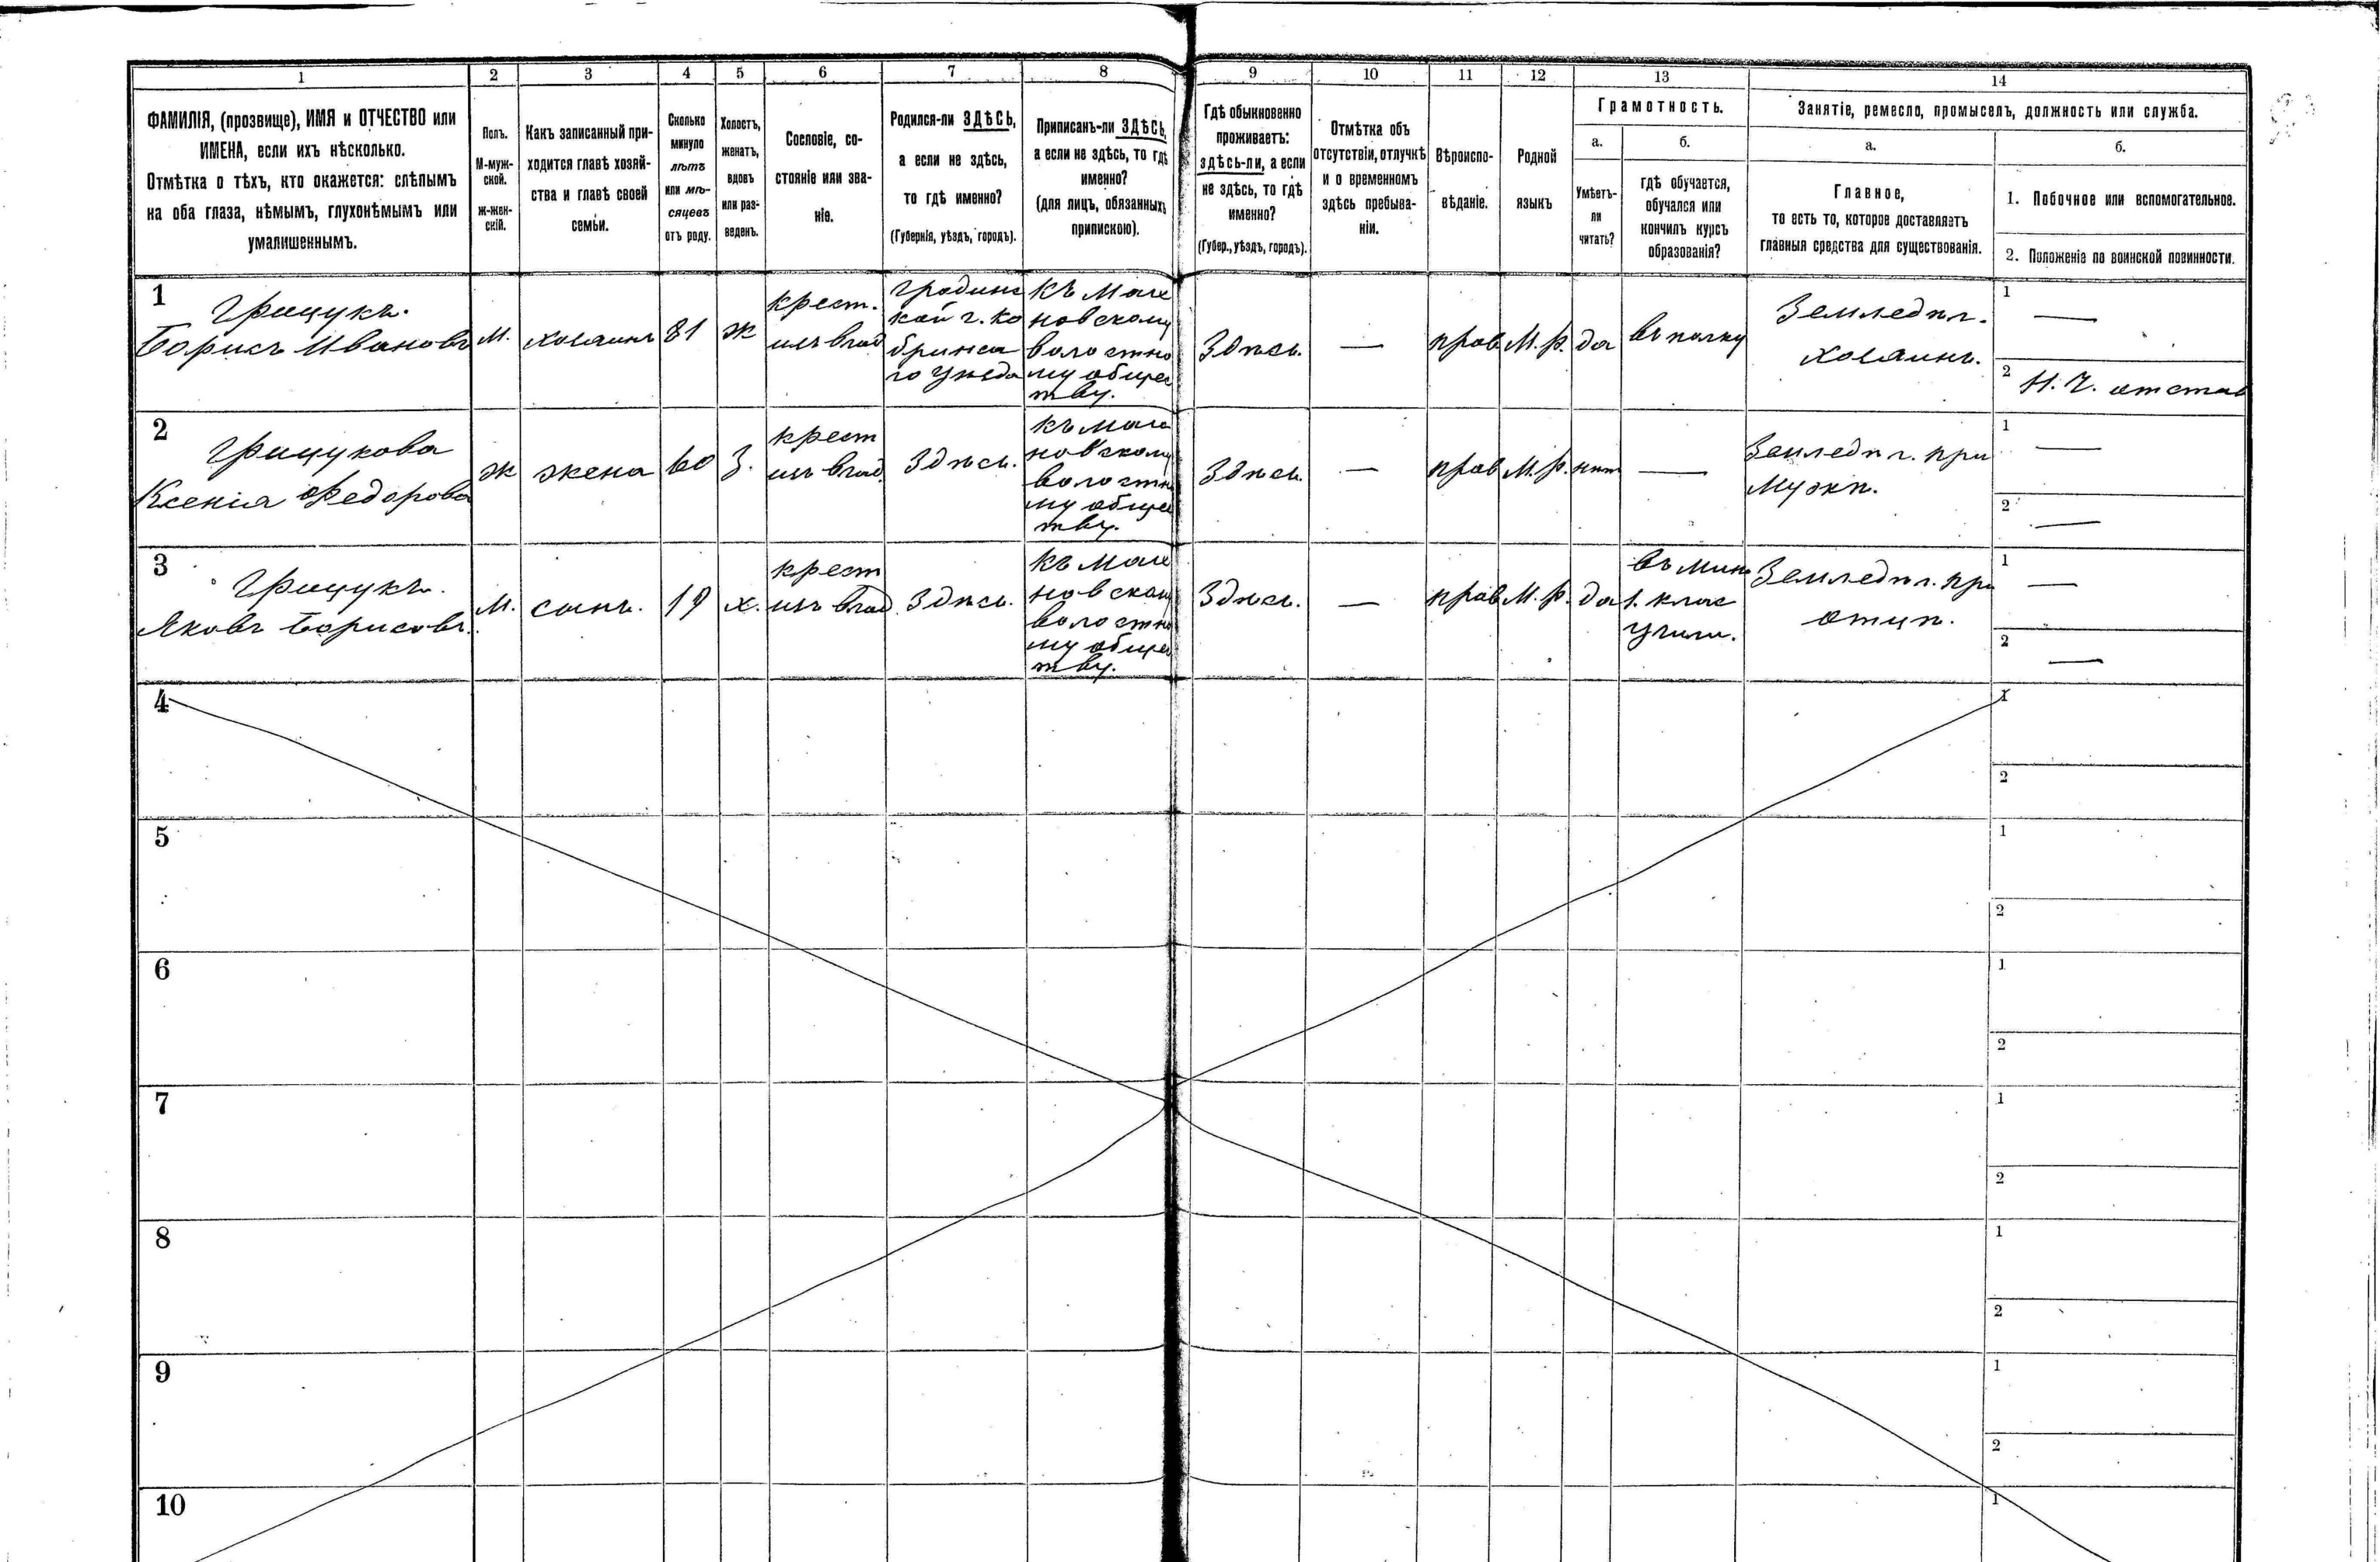 1 2 3 4 5 6 7 8 9 10 11 12 13 14
ФАМИЛІЯ, (прозвище), ИМЯ и ОТЧЕСТВО или
ИМЕНА, если ихъ нѣсколько.
Отмѣтка о тѣхъ, кто окажется: слѣпымъ
на оба глаза, нѣмымъ, глухонѣмымъ или
умалишеннымъ.
Полъ.
М-муж-
ской.
ж-жен-
скій.
Какъ записанный при-
ходится главѣ хозяй-
ства и главѣ своей
семьи.
Сколько
минуло
лѣтъ
или мѣ-
сяцевъ
отъ роду.
Холостъ,
женатъ,
вдовъ
или раз-
веденъ.
Сословіе, со-
стояніе или зва-
ніе.
Родился-ли ЗДѢСЬ,
а если не здѣсь,
то гдѣ именно?
(Губернія, уѣздъ, городъ).
Приписанъ-ли ЗДѢСЬ,
а если не здѣсь, то гдѣ
именно?
(для лицъ, обязанныхъ
припискою).
Гдѣ обыкновенно
проживаетъ:
здѣсь-ли, а если
не здѣсь, то гдѣ
именно?
(Губер., уѣздъ, городъ).
Отмѣтка объ
отсутствіи, отлучкѣ
и о временномъ
здѣсь пребыва-
ніи.
Вѣроиспо-
вѣданіе.
Родной
языкъ
Грамотность.
а.
Умѣетъ-
ли
читать?
б.
гдѣ обучается,
обучался или
кончилъ курсъ
образованія?
Занятіе, ремесло, промыселъ, должность или служба.
а.
Главное,
то есть то, которое доставляетъ
главныя средства для существованія.
б.
1. Побочное или вспомогательное.
2. Положеніе по воинской повинности.
1
Грицукъ.
Борисъ Ивановъ
М.
хозяинъ
81
ж
крест.
изъ влад
Гродинс
кой г. Ко
бринска
го уѣзда
Къ Мате
новскому
волостно
му общес
тву.
Здѣсь.
—
прав
М. р.
да
въ полку
Земледѣл.
хозяинъ.
1
—
2
Н. Ч. отстав
2
Грицукова
Ксенія Федорова
ж
жена
60
З.
крест
изъ влад
Здѣсь.
Здѣсь.
—
прав
М. р.
нѣт
—
Земледѣл. при
мужѣ.
1
—
2
—
3
Грицукъ.
Яковъ Борисовъ.
М.
сынъ.
19
х.
крест
изъ влад
Здѣсь.
Здѣсь.
—
прав
М. р.
да
1. клас
училищ.
Земледѣл. при
отцѣ.
1
—
2
—
4
1
2
5
1
2
6
1
2
7
1
2
8
1
2
9
1
2
10
1